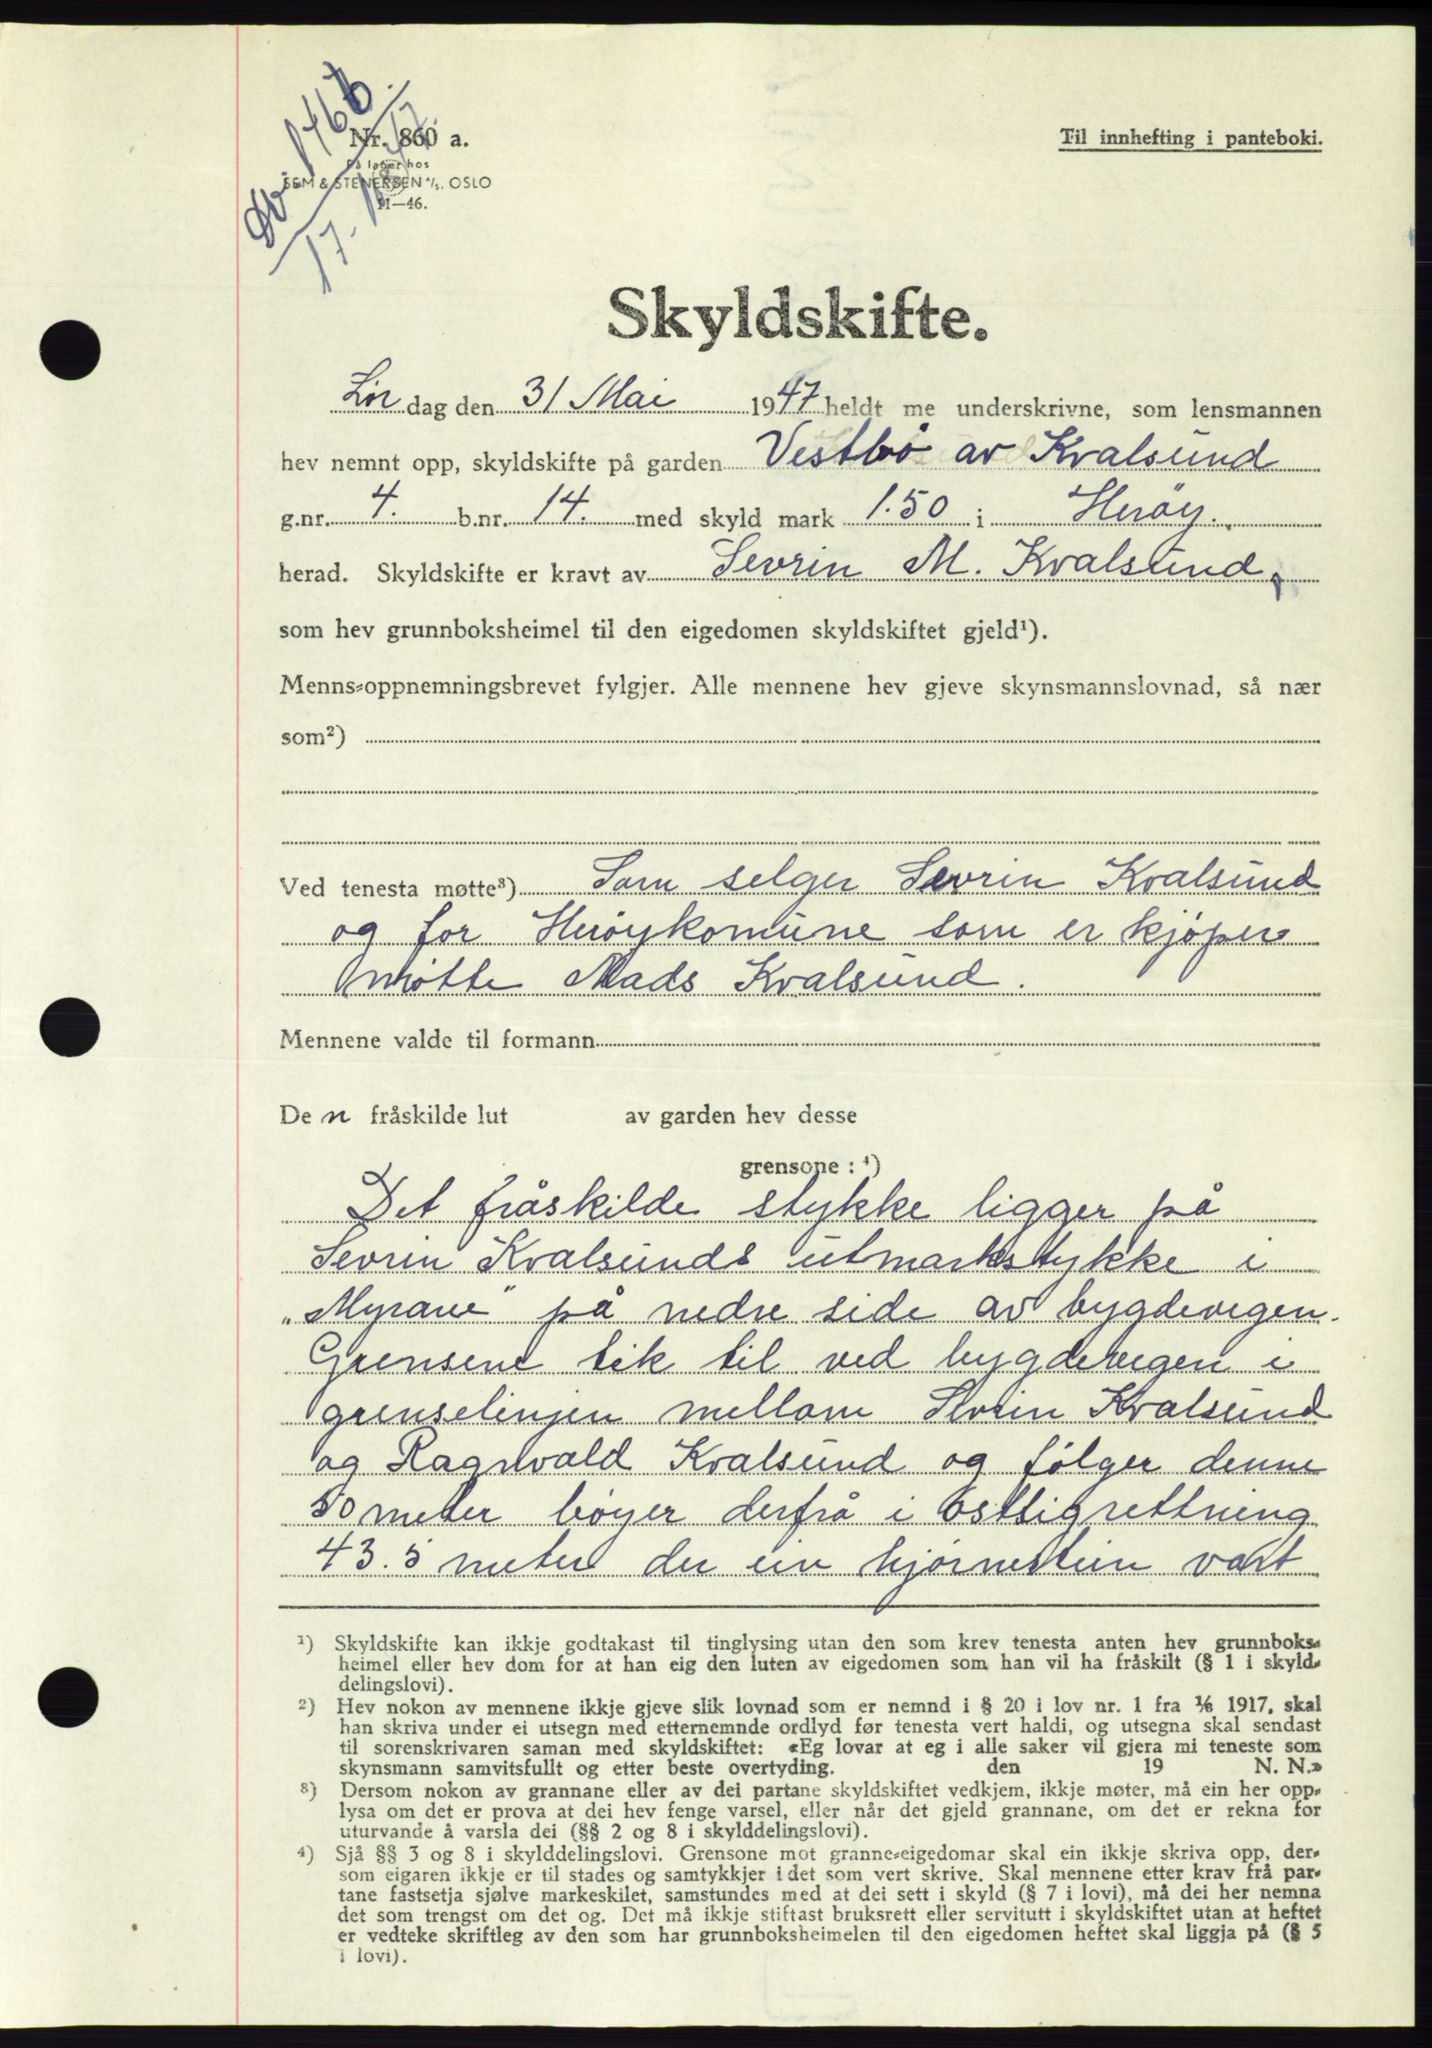 Db. 1466
17-11-47.
Nr. 860 a.
På lager hos
SEM & STENERSEN A/S, OSLO
11—46.
Til innhefting i panteboki.
Skyldskifte.
Lør dag den 31 Mai 1947 heldt me underskrivne, som lensmannen
hev nemnt opp, skyldskifte på garden Vestbø av Kvalsund
g.nr. 4. b.nr. 14. med skyld mark 1.50 i Herøy.
herad. Skyldskifte er kravt av Sevrin M. Kvalsund,
som hev grunnboksheimel til den eigedomen skyldskiftet gjeld¹).
Menns-oppnemningsbrevet fylgjer. Alle mennene hev gjeve skynsmannslovnad, så nær
som²)
Ved tenesta møtte³) Som selger Sevrin Kvalsund
og for Herøykomune som er kjøper
møtte Mads Kvalsund.
Mennene valde til formann
De n fråskilde lut av garden hev desse
grensone : ⁴)
Det fråskilde stykke ligger på
Sevrin Kvalsunds utmarkstykke i
„Myrane" på nedre side av bygdevegen.
Grensene tek til ved bygdevegen i
grenselinjen mellom Sevrin Kvalsund
og Ragnvald Kvalsund og følger denne
50 meter bøyer derfrå i østligrettning
43.5 meter der ein hjørnestein vart
¹) Skyldskifte kan ikkje godtakast til tinglysing utan den som krev tenesta anten hev grunnboks-
heimel eller hev dom for at han eig den luten av eigedomen som han vil ha fråskilt (§ 1 i skyld-
delingslovi).
²) Hev nokon av mennene ikkje gjeve slik lovnad som er nemnd i § 20 i lov nr. 1 fra ⅙ 1917, skal
han skriva under ei utsegn med etternemnde ordlyd før tenesta vert haldi, og utsegna skal sendast
til sorenskrivaren saman med skyldskiftet: «Eg lovar at eg i alle saker vil gjera mi teneste som
skynsmann samvitsfullt og etter beste overtyding. den 19 N. N.»
³) Dersom nokon av grannane eller av dei partane skyldskiftet vedkjem, ikkje møter, må ein her opp-
lysa om det er prova at dei hev fenge varsel, eller når det gjeld grannane, om det er rekna for
uturvande å varsla dei (§§ 2 og 8 i skylddelingslovi).
⁴) Sjå §§ 3 og 8 i skylddelingslovi. Grensone mot granne-eigedomar skal ein ikkje skriva opp, der-
som eigaren ikkje er til stades og samtykkjer i det som vert skrive. Skal mennene etter krav frå par-
tane fastsetja sjølve markeskilet, samstundes med at dei sett i skyld (§ 7 i lovi), må dei her nemna
det som trengst om det og. Det må ikkje stiftast bruksrett eller servitutt i skyldskiftet utan at heftet
er vedteke skriftleg av den som har grunnboksheimelen til den eigedomen heftet skal liggja på (§ 5
i lovi).